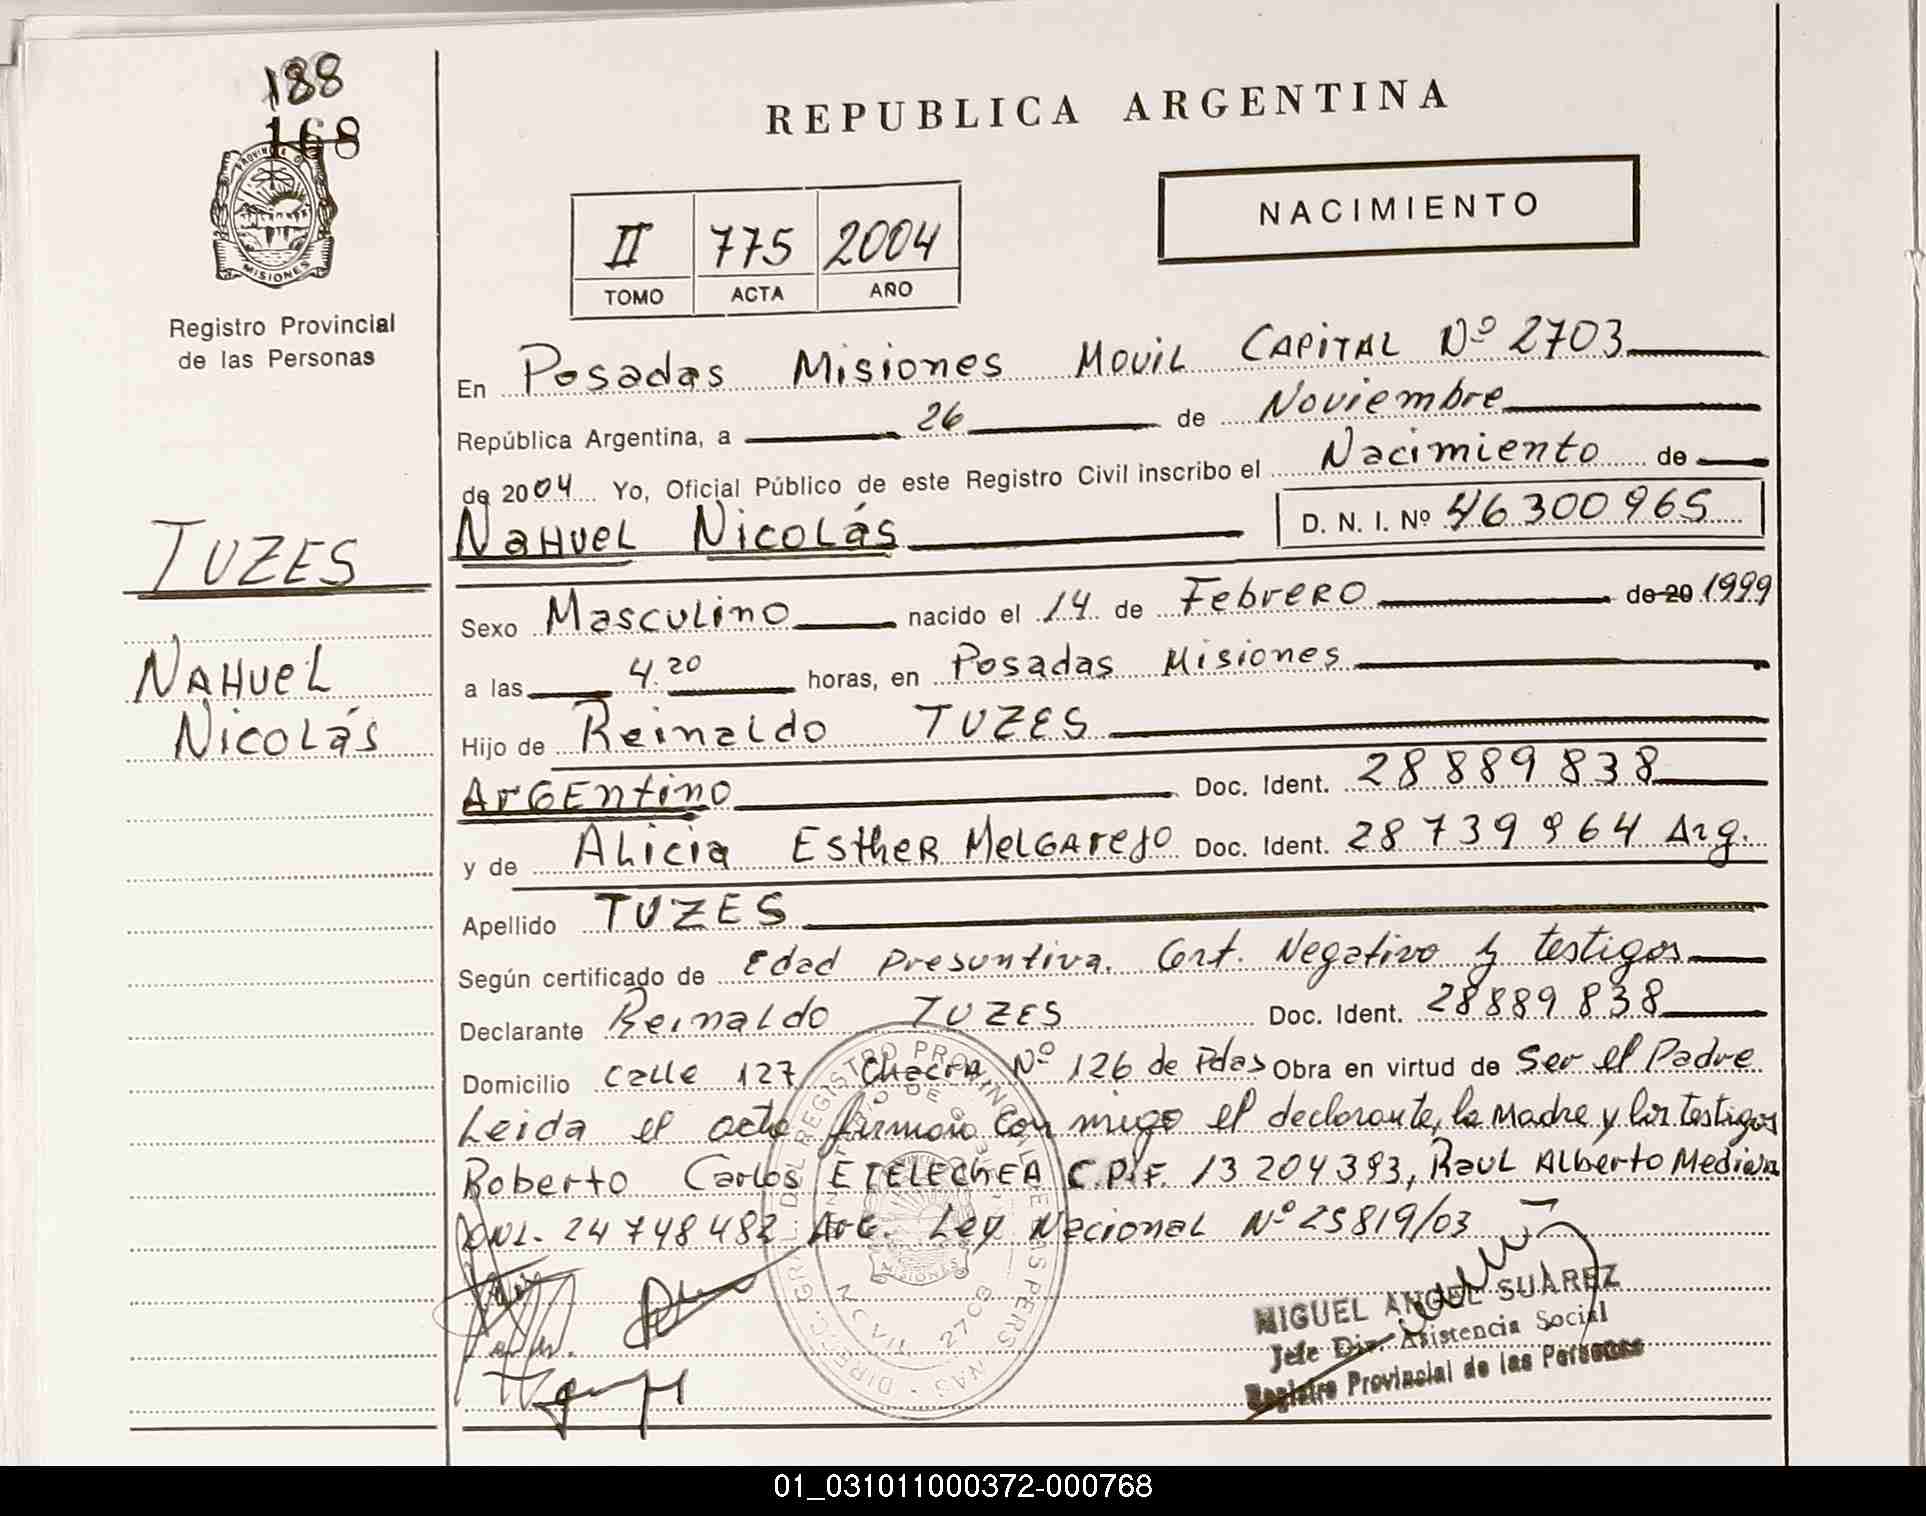 188
168
PROVINCIA DE
MISIONES
Registro Provincial
de las Personas
TUZES
NAHUEL
NICOLás
REPUBLICA ARGENTINA
NACIMIENTO
II 775 2004
TOMO ACTA AÑO
En Posadas Misiones MOVIL CAPITAL Nº 2703
República Argentina, a 26 de Noviembre
de 2004 Yo, Oficial Público de este Registro Civil inscribo el Nacimiento de
NAHUEL NICOLás D. N. I. Nº 46300965
Sexo Masculino nacido el 14 de Febrero de 20 1999
a las 4.20 horas, en Posadas Misiones
Hijo de Reinaldo TUZES
Argentino Doc. Ident. 28889838
y de Alicia Esther Melgarejo Doc. Ident. 28739964 Arg.
Apellido TUZES
Según certificado de Edad Presuntiva. Cert. Negativo y testigos
Declarante Reinaldo TUZES Doc. Ident. 28889838
Domicilio calle 127 Chacra Nº 126 de Pdas Obra en virtud de Ser el Padre
Leida el acta firman con migo el declarante, la Madre y los testigos
Roberto Carlos ETELECHEA C.P.F. 13204393, Raul Alberto Medina
DNI. 24748482 Arg. Ley Nacional Nº 25819/03
DIREC. GRAL. DEL REGISTRO PROVINCIAL DE LAS PERSONAS
MISIONES
MOVIL 2703
MIGUEL ANGEL SUAREZ
Jefe Dir. Asistencia Social
Registro Provincial de las Personas
01_031011000372-000768